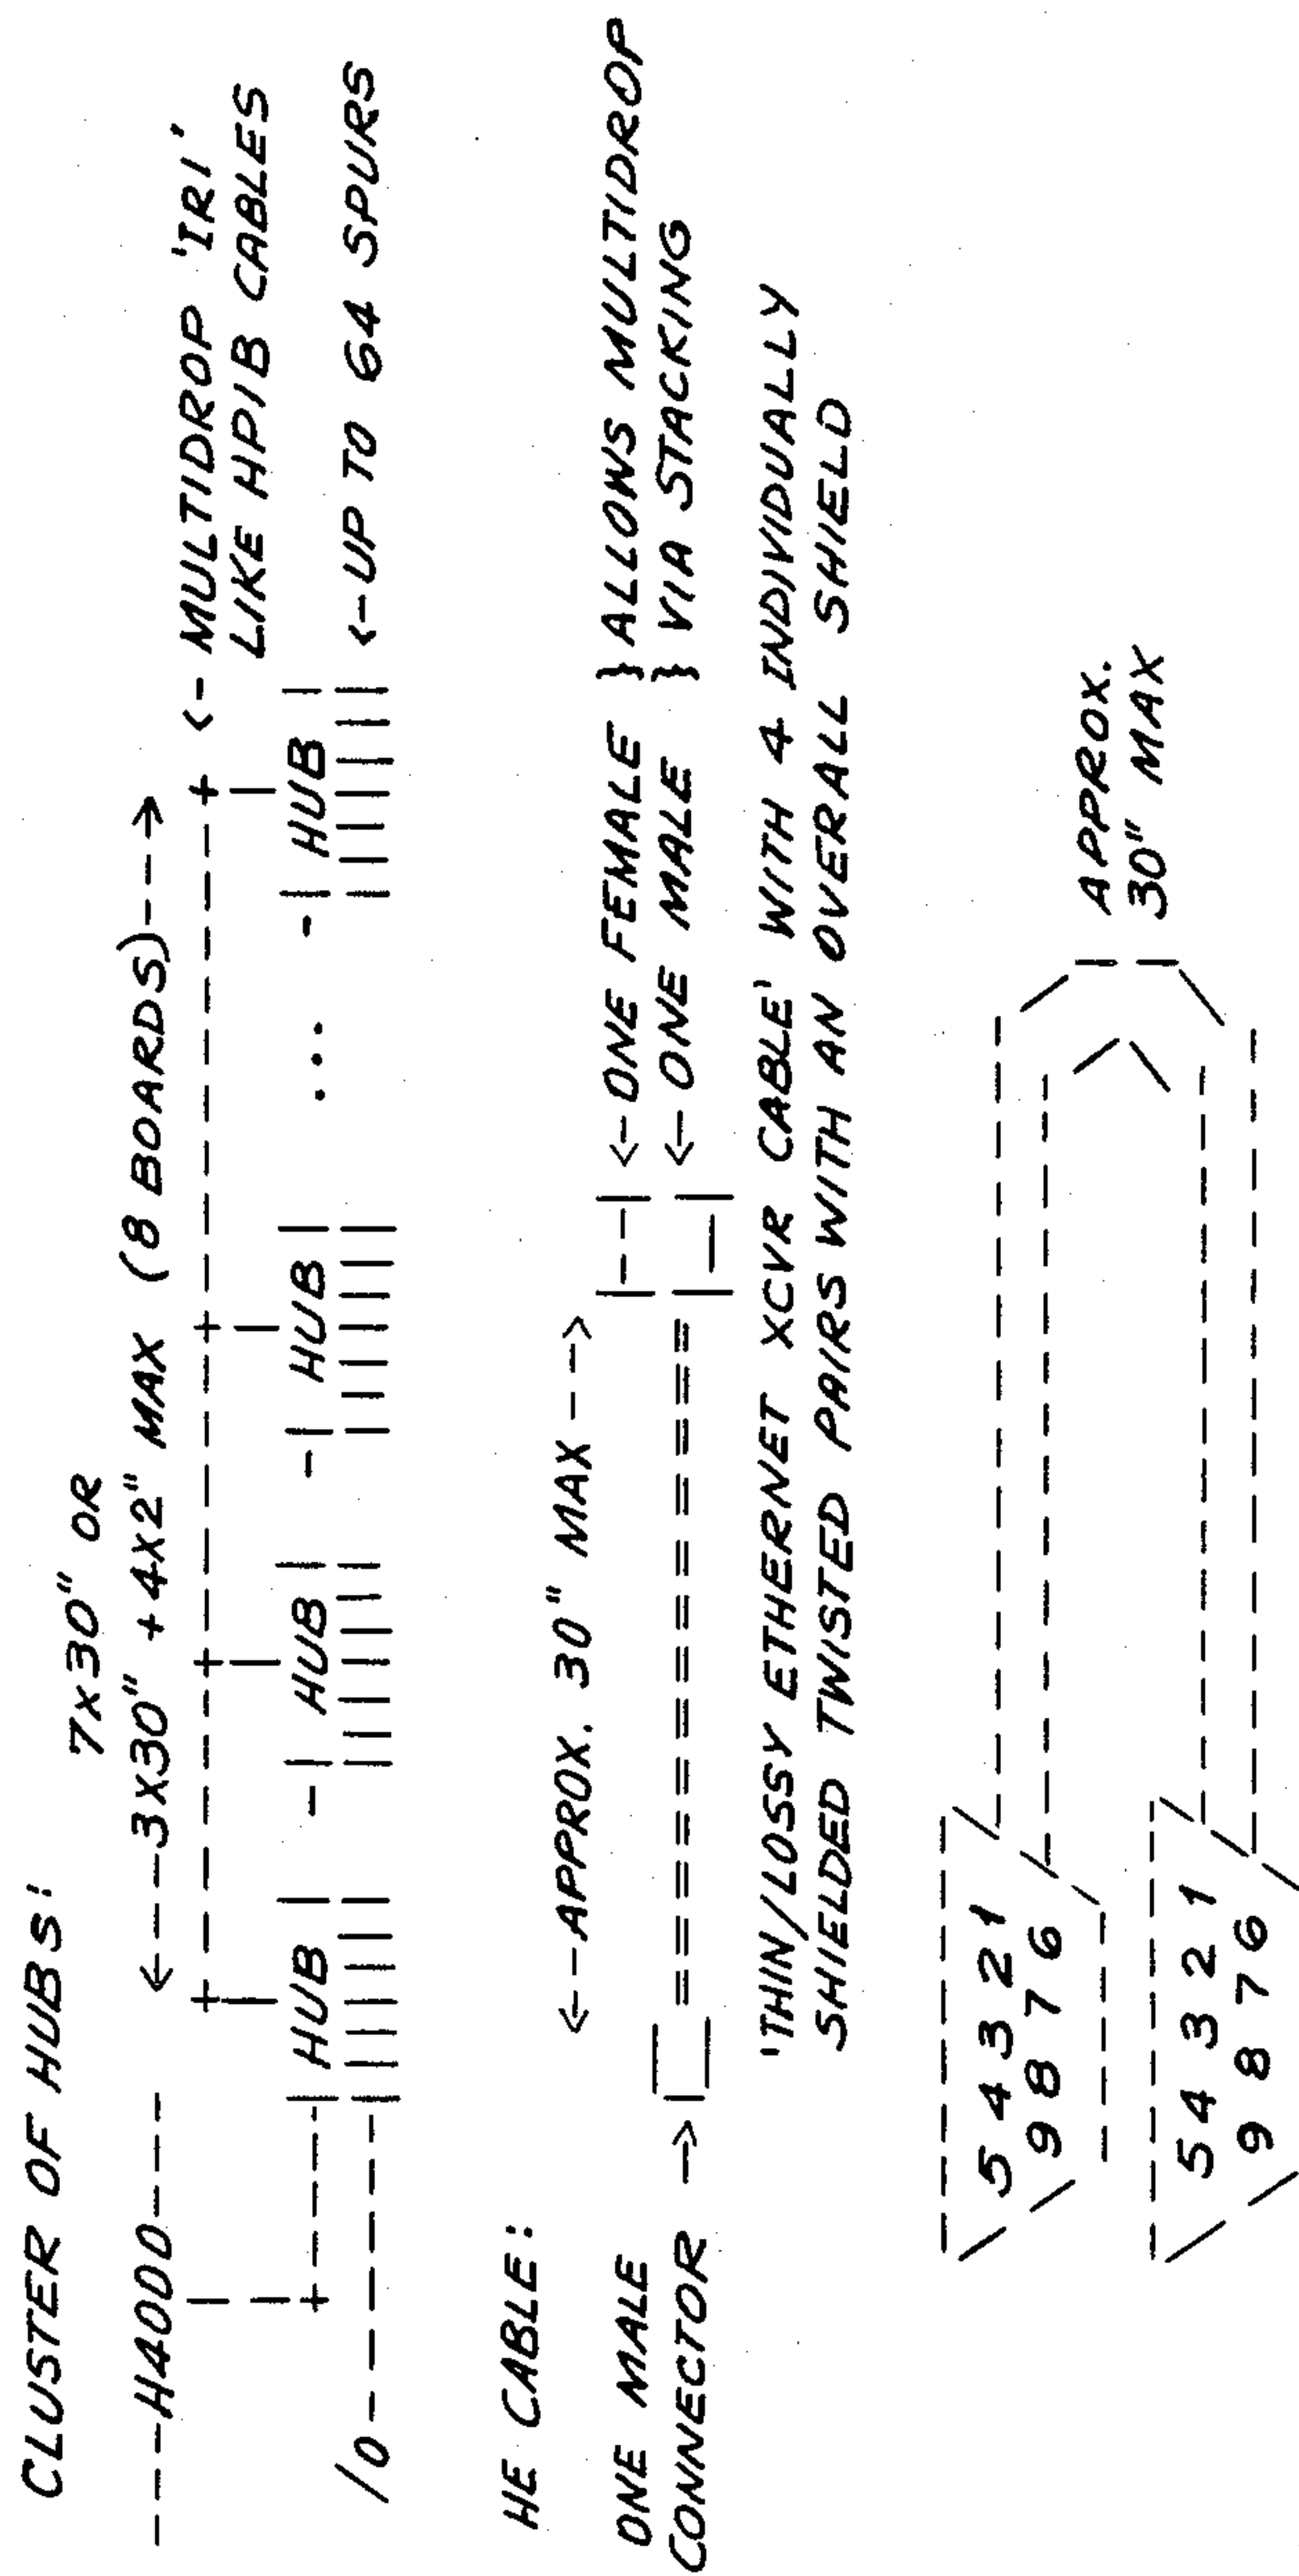 CLUSTER OF HUBS:
7x30" OR
---H4000---- <---3x30" + 4x2" MAX (8 BOARDS)--->
+------+------+------+------+ <- MULTIDROP 'IRI'
LIKE HPIB CABLES
| HUB | -| HUB | -| HUB | ... -| HUB |
10------ <-UP TO 64 SPURS
HE CABLE:
<--APPROX. 30" MAX-->
ONE MALE |---| <-ONE FEMALE } ALLOWS MULTIDROP
CONNECTOR -> ============= <- ONE MALE } VIA STACKING
'THIN/LOSSY ETHERNET XCVR CABLE' WITH 4 INDIVIDUALLY
SHIELDED TWISTED PAIRS WITH AN OVERALL SHIELD
\ 5 4 3 2 1 /
\ 9 8 7 6 /
APPROX.
30" MAX
\ 5 4 3 2 1 /
\ 9 8 7 6 /